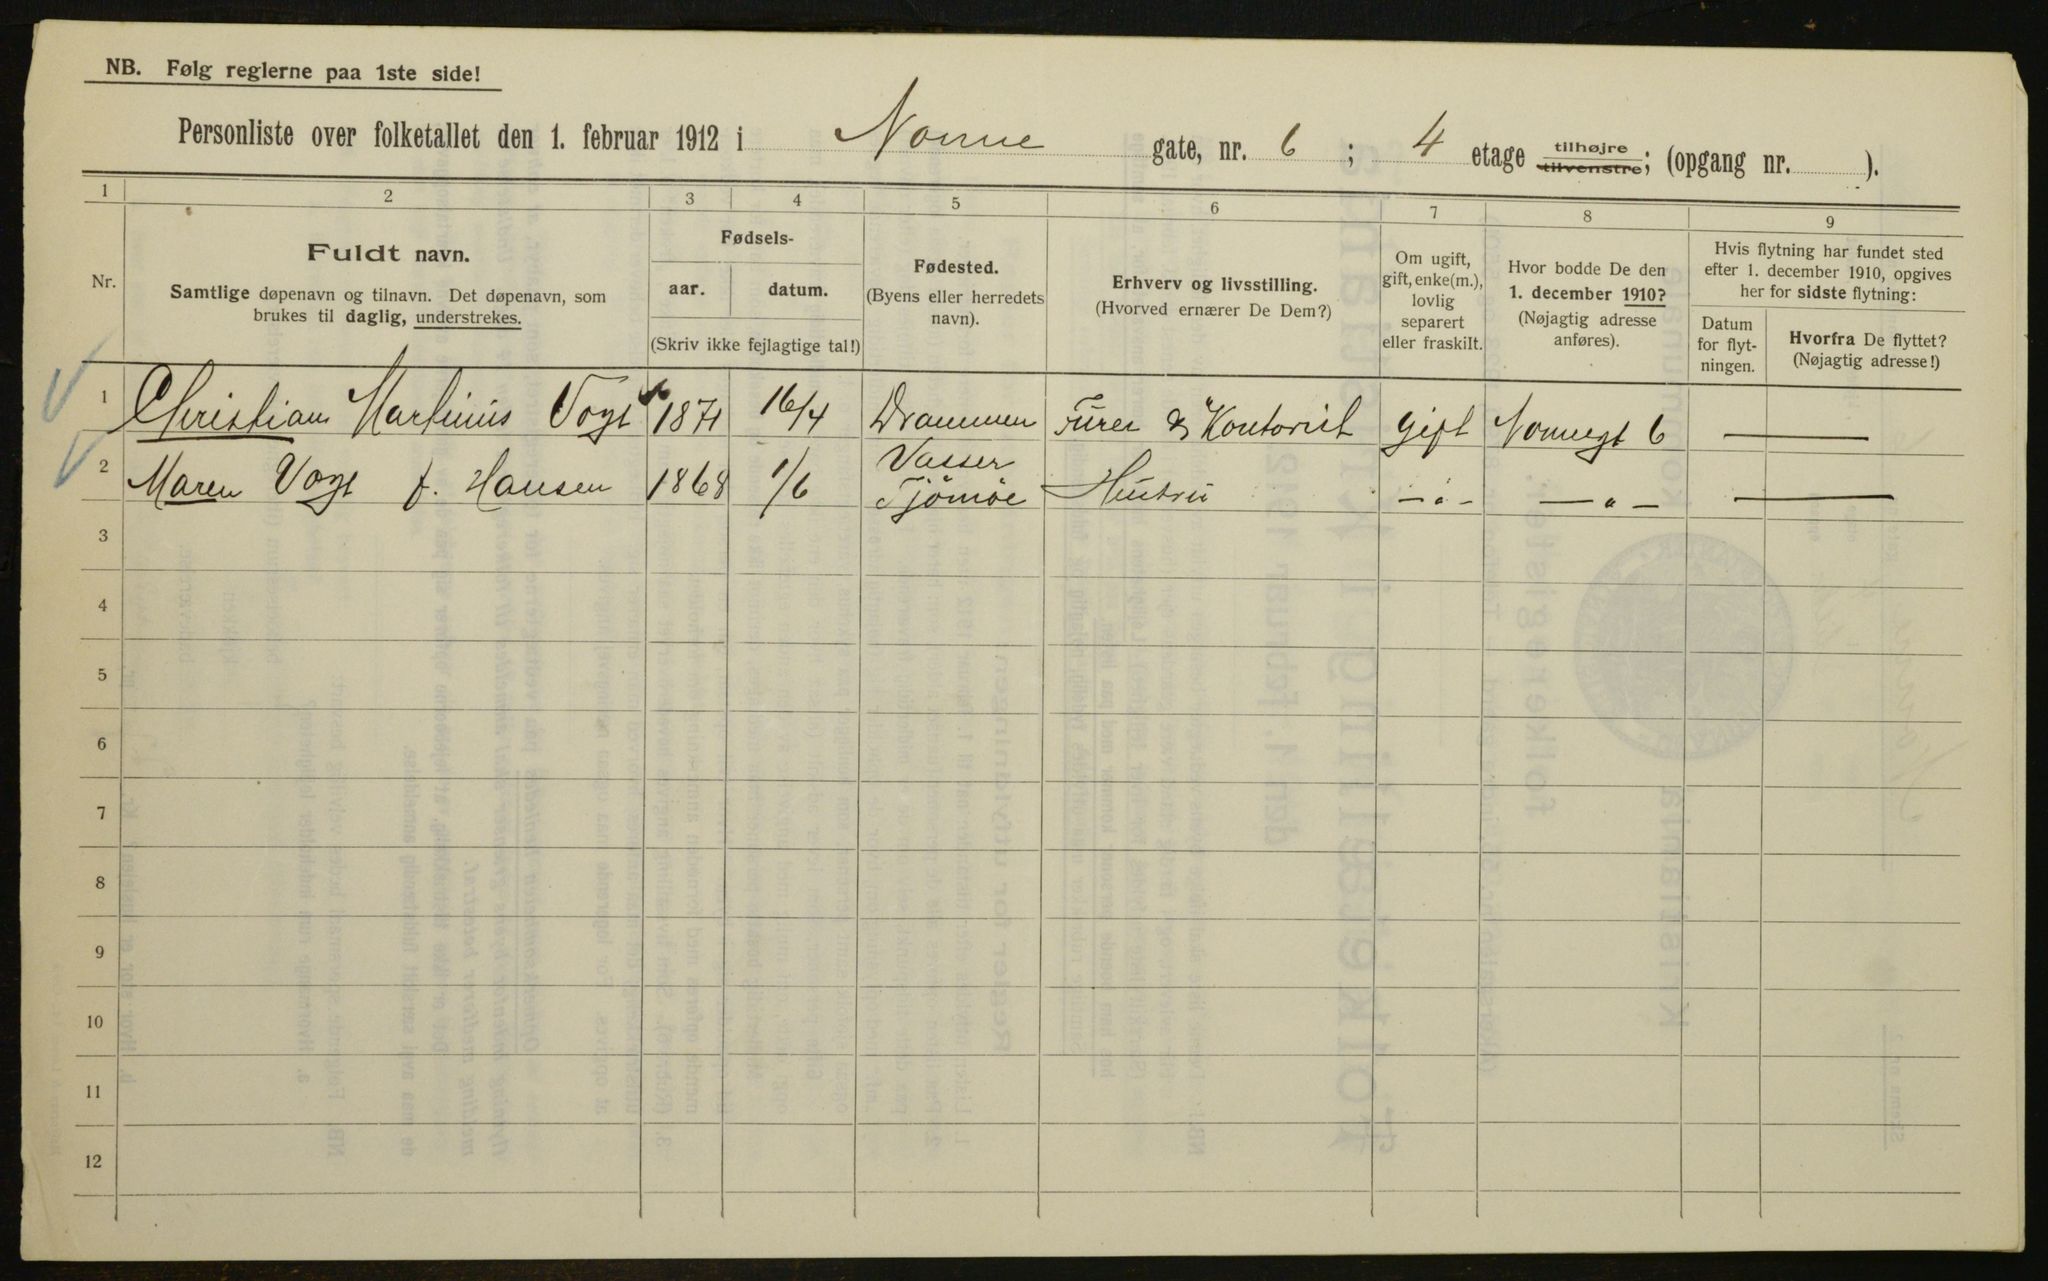 NB. Følg reglerne paa 1ste side!
Personliste over folketallet den 1. februar 1912 i Nonne gate, nr. 6 ; 4 etage tilhøjre tilvenstre; (opgang nr. ).
1 2 3 4 5 6 7 8 9
Nr.
Fuldt navn.
Samtlige døpenavn og tilnavn. Det døpenavn, som
brukes til daglig, understrekes.
Fødsels-
aar. datum.
(Skriv ikke fejlagtige tal!)
Fødested.
(Byens eller herredets
navn).
Erhverv og livsstilling.
(Hvorved ernærer De Dem?)
Om ugift,
gift, enke(m.),
lovlig
separert
eller fraskilt.
Hvor bodde De den
1. december 1910?
(Nøjagtig adresse
anføres).
Hvis flytning har fundet sted
efter 1. december 1910, opgives
her for sidste flytning:
Datum
for flyt-
ningen.
Hvorfra De flyttet?
(Nøjagtig adresse!)
1 Christian Martinius Vogt 1871 16/4 Drammen Furer & Kontorist gift Nonnegt 6 —
2 Maren Vogt f. Hansen 1868 1/6 Vasser
Tjömöe Hustru — „ — — „ — —
3
4
5
6
7
8
9
10
11
12